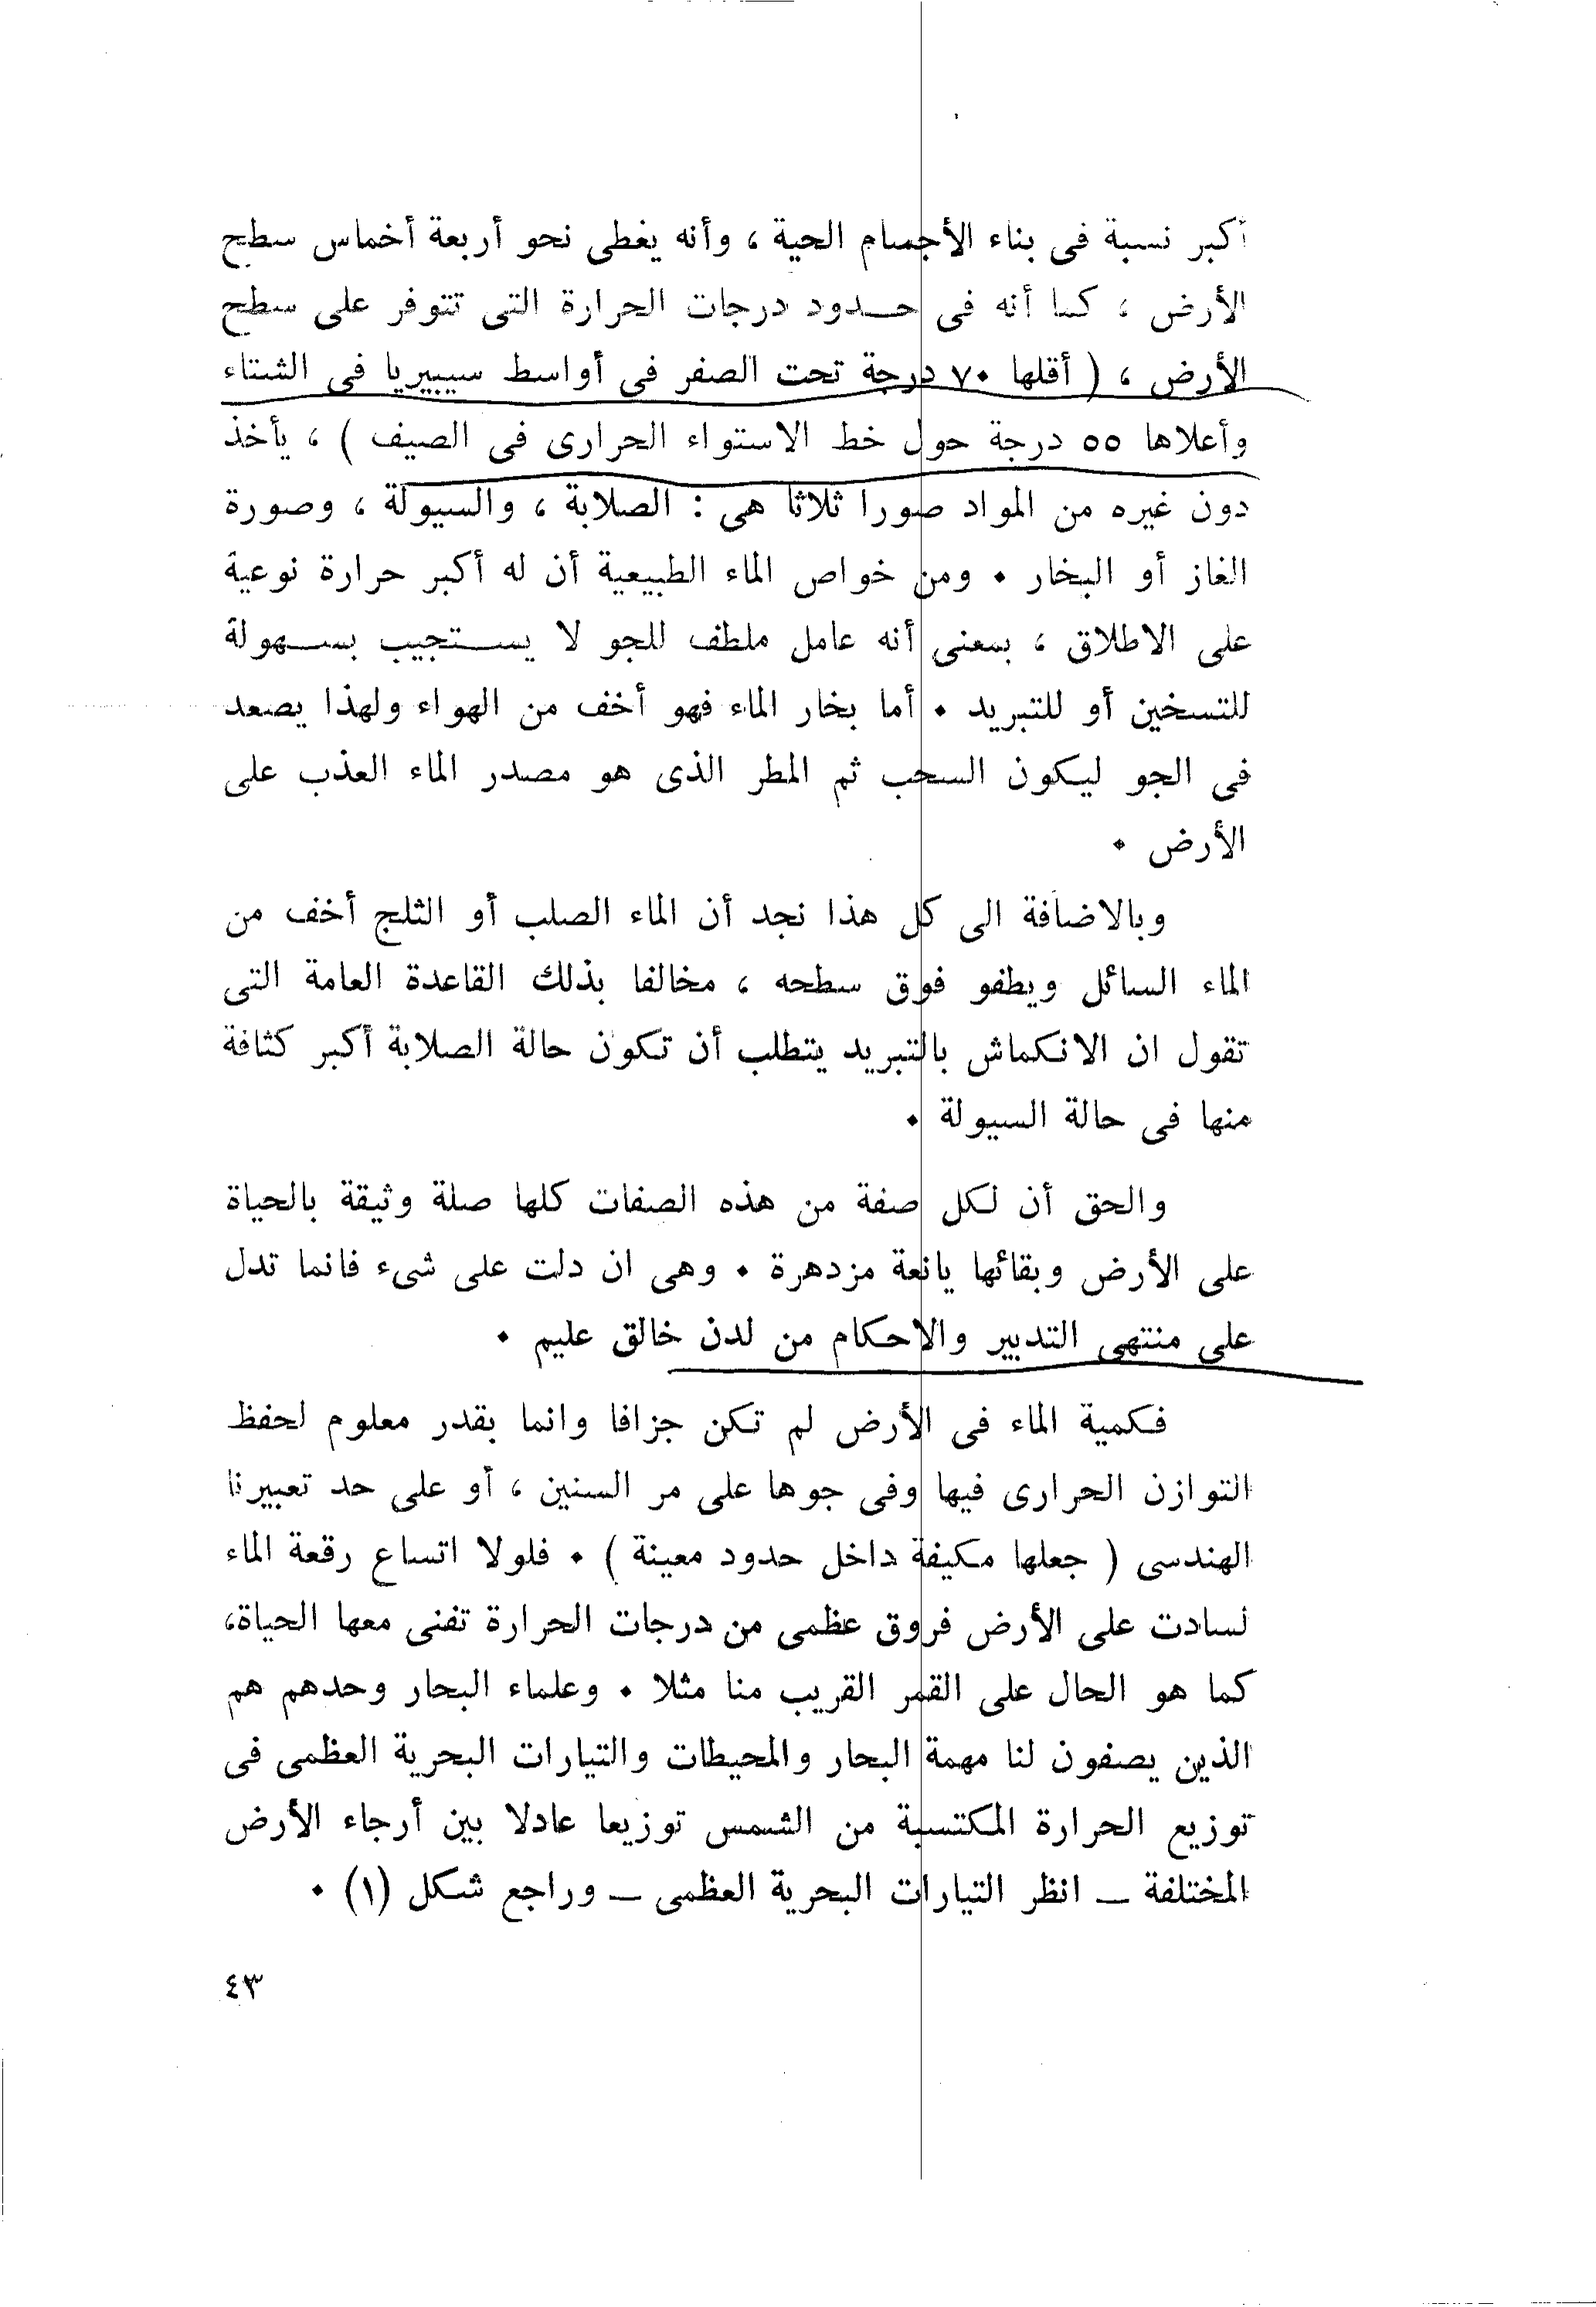 أكبر نسبة فى بناء الأجسام الحية ، وأنه يغطى نحو أربعة أخماس سطح
الأرض ، كما أنه فى حـــدود درجات الحرارة التى تتوفر على سطح
الأرض ، ( أقلها ٧٠ درجة تحت الصفر فى أواسط سيبيريا فى الشتاء
وأعلاها ٥٥ درجة حول خط الاستواء الحرارى فى الصيف ) ، يأخذ
دون غيره من المواد صورا ثلاثا هى : الصلابة ، والسيولة ، وصورة
الغاز أو البخار ٠ ومن خواص الماء الطبيعية أن له أكبر حرارة نوعية
على الاطلاق ، بمعنى أنه عامل ملطف للجو لا يســـتجيب بســـهولة
للتسخين أو للتبريد ٠ أما بخار الماء فهو أخف من الهواء ولهذا يصعد
فى الجو ليكون السحب ثم المطر الذى هو مصدر الماء العذب على
الأرض ٠
وبالاضافة الى كل هذا نجد أن الماء الصلب أو الثلج أخف من
الماء السائل ويطفو فوق سطحه ، مخالفا بذلك القاعدة العامة التى
تقول ان الانكماش بالتبريد يتطلب أن تكون حالة الصلابة أكبر كثافة
منها فى حالة السيولة ٠
والحق أن لكل صفة من هذه الصفات كلها صلة وثيقة بالحياة
على الأرض وبقائها يانعة مزدهرة ٠ وهى ان دلت على شىء فانما تدل
على منتهى التدبير والاحكام من لدن خالق عليم ٠
فكمية الماء فى الأرض لم تكن جزافا وانما بقدر معلوم لحفظ
التوازن الحرارى فيها وفى جوها على مر السنين ، أو على حد تعبيرنا
الهندسى ( جعلها مكيفة داخل حدود معينة ) ٠ فلولا اتساع رقعة الماء
لسادت على الأرض فروق عظمى من درجات الحرارة تفنى معها الحياة،
كما هو الحال على القمر القريب منا مثلا ٠ وعلماء البحار وحدهم هم
الذين يصفون لنا مهمة البحار والمحيطات والتيارات البحرية العظمى فى
توزيع الحرارة المكتسبة من الشمس توزيعا عادلا بين أرجاء الأرض
المختلفة — انظر التيارات البحرية العظمى — وراجع شكل (١) ٠
٤٣